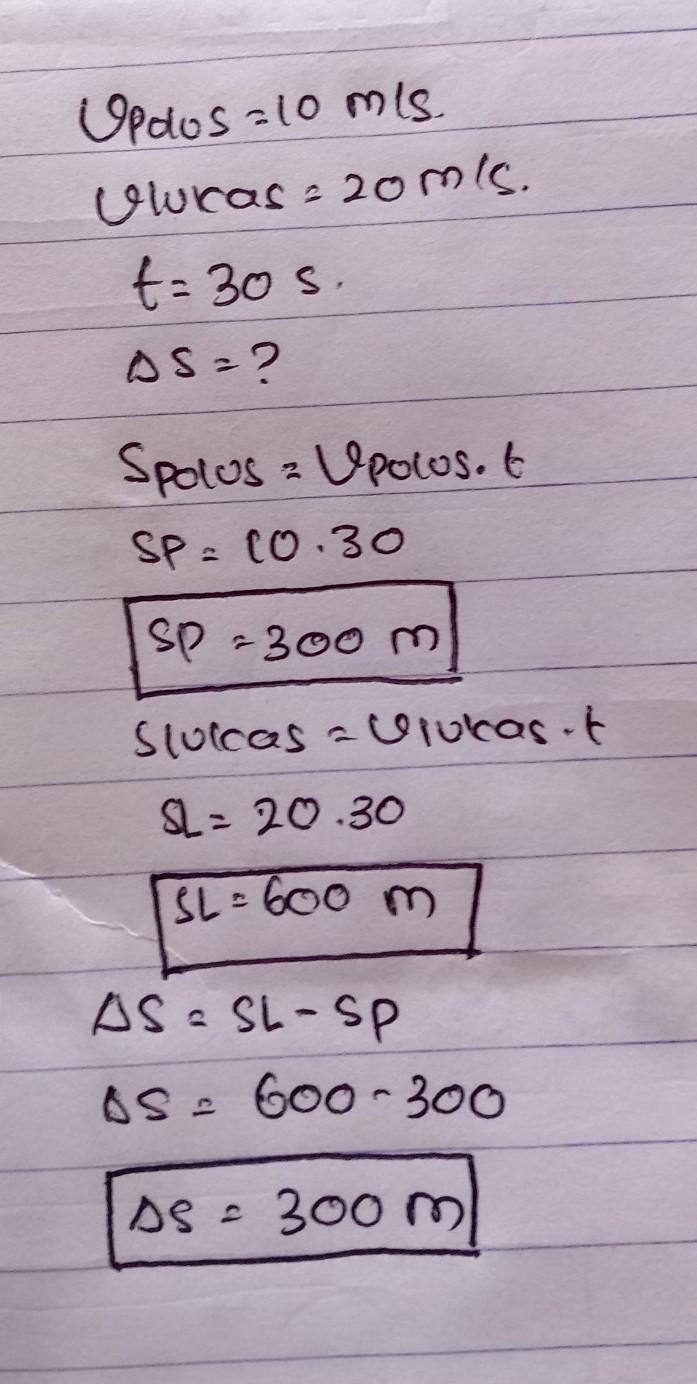 Vpolos = 10 m/s.
Vlukas = 20 m/s.
t = 30 s.
ΔS = ?
Spolos = Vpolos. t
SP = 10.30
SP = 300 m
Slukas = Vlukas.t
SL = 20.30
SL = 600 m
ΔS = SL - SP
ΔS = 600 - 300
ΔS = 300 m